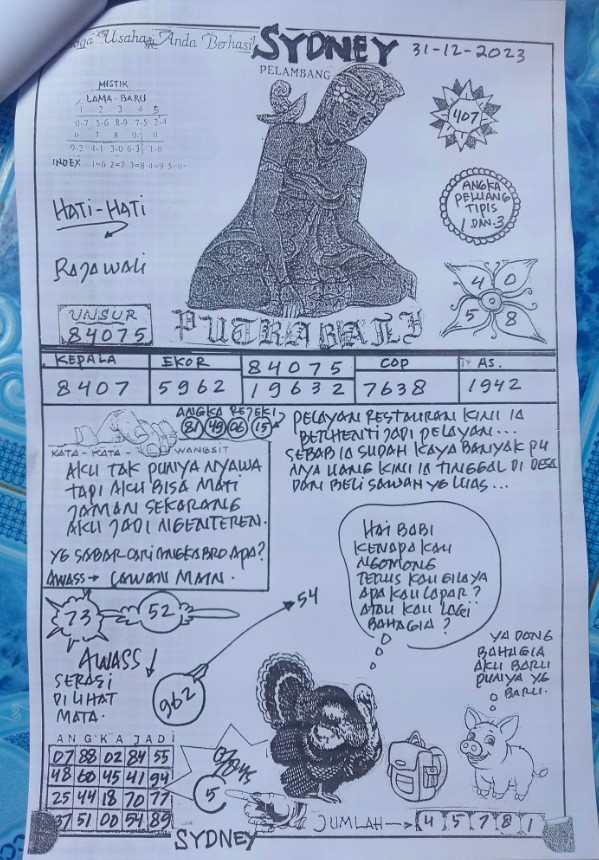 Usaha Anda Berhasil
SYDNEY
31-12-2023
PELAMBANG
MISTIK
LAMA - BARU
1 2 3 4 5
0-7 5-6 8-9 7-5 2-4
6 7 8 9 0
9-2 4-1 3-0 6-3 1-8
INDEX 1=6 2=7 3=8 4=9 5=0
407
HATI-HATI
ANGKA
PELUANG
TIPIS
1 DAN 3
RAJAWALI
4 0
5 8
UNSUR
84075
PUTRA BALI
KEPALA EKOR 84075 COP AS.
8407 5962 19632 7638 1942
ANGKA REJEKI
81 49 06 15
KATA - KATA - WANGSIT
AKU TAK PUNYA NYAWA
TAPI AKU BISA MATI
ZAMAN SEKARANG
AKU JADI NGENTEREN.
YG SABAR CARI ANGKA BRO APA?
AWASS → LAWAN MAIN.
PELAYAN RESTAURAN KINI IA
BERHENTI JADI PELAYAN...
SEBAB IA SUDAH KAYA BANYAK PU
NYA UANG KINI IA TINGGAL DI DESA
DAN BELI SAWAH YG LUAS...
HAI BABI
KENAPA KAU
NGOMONG
TERUS KAU GILA YA
APA KAU LAPAR?
ATAU KAU LAGI
BAHAGIA?
YA DONG
BAHAGIA
AKU BARU
PUNYA YG
BARU.
73
52
54
962
AWASS
SERASI
DI LIHAT
MATA.
ANGKA JADI
07 88 02 84 55
48 60 45 41 94
25 44 18 70 77
37 51 00 54 89
5
JUMLAH → 4 5 7 8 1
SYDNEY